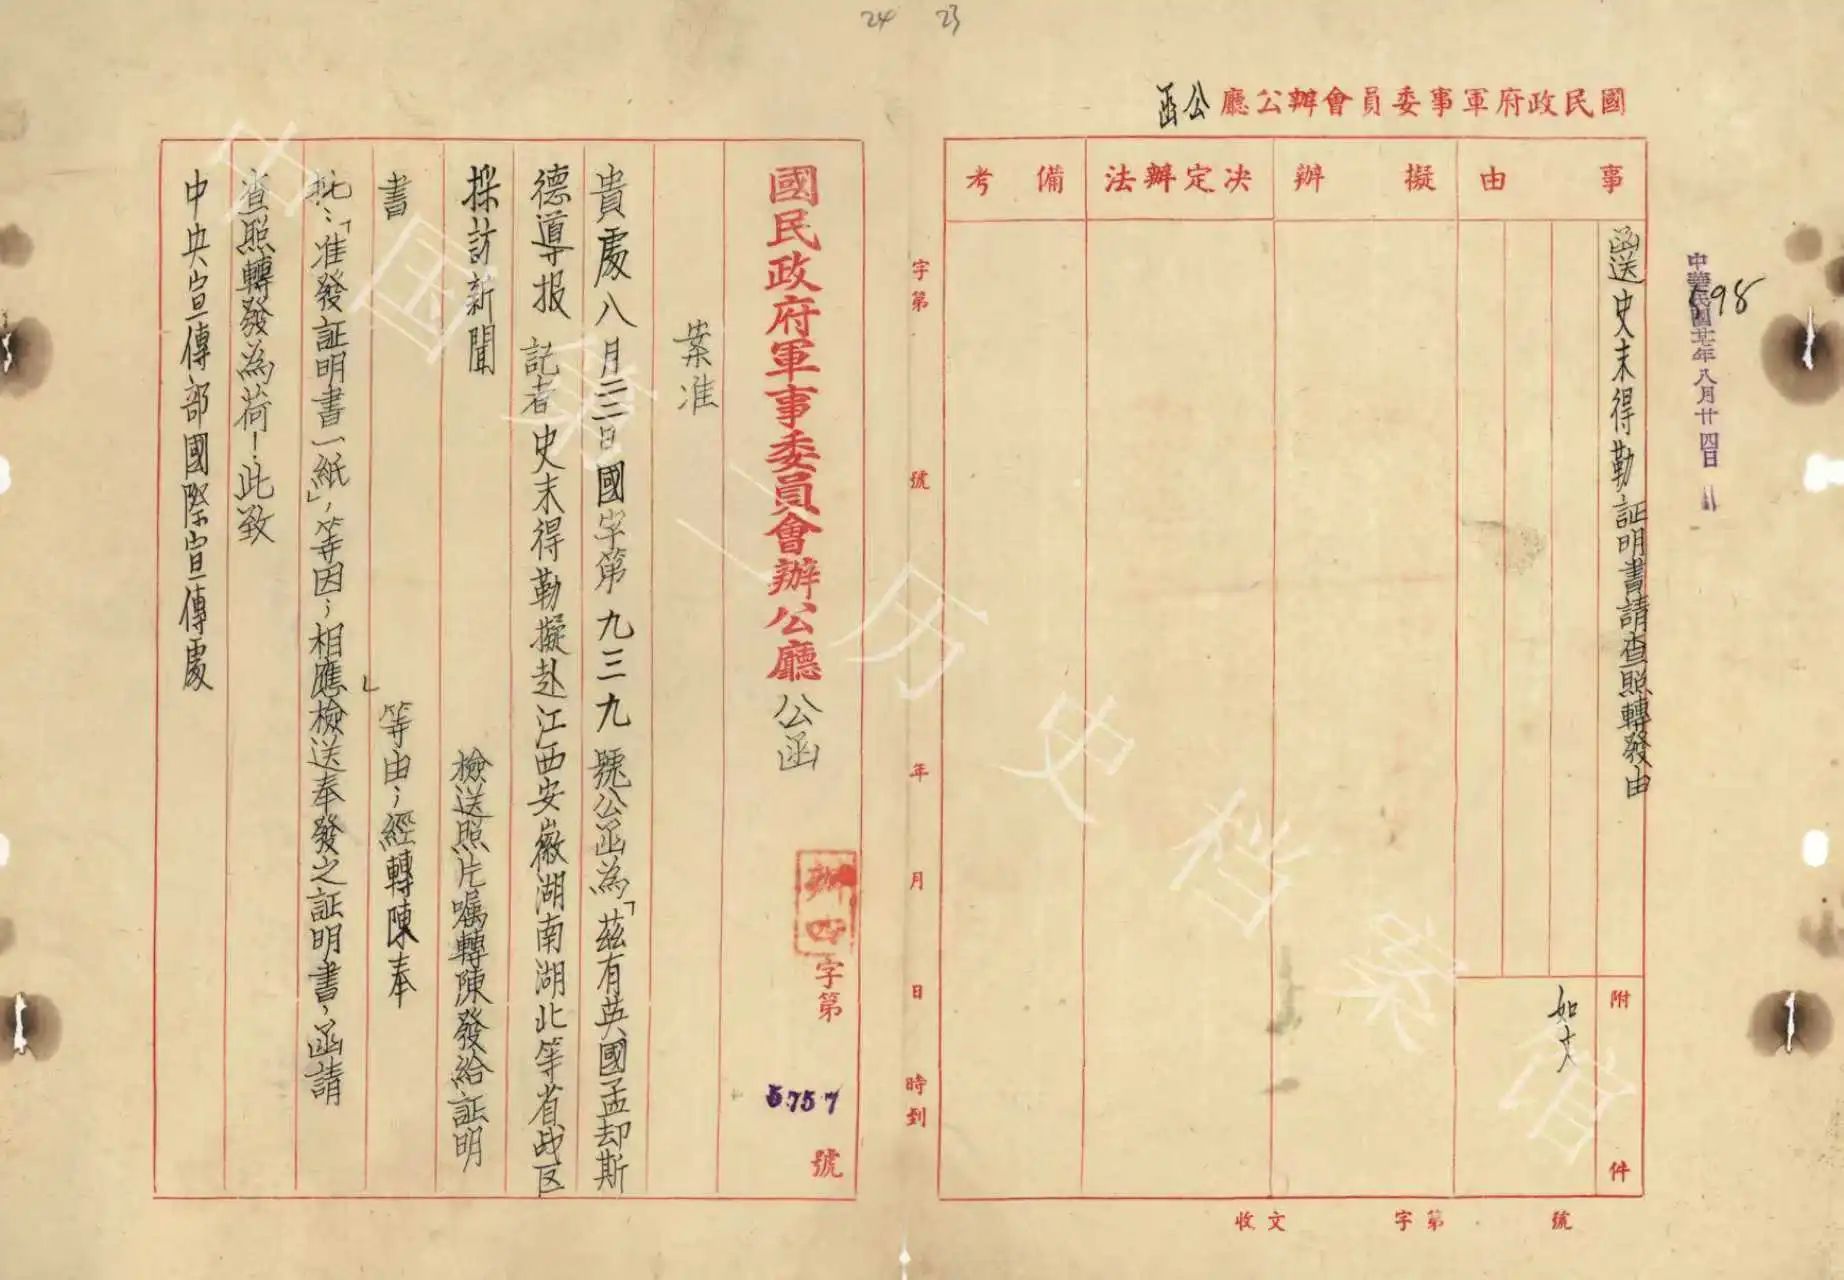 24 23
國民政府軍事委員會辦公廳公函
事由
擬辦
決定辦法
備考
函送史末得勒証明書請查照轉發由
附件
如文
中華民國廿七年八月廿四日
98
字第 號 年 月 日 時到
收文 字第 號
國民政府軍事委員會辦公廳公函
辦四字第5757號
案准
貴處八月二三日國字第九三九號公函為「茲有英國孟却斯
德導报 記者史末得勒擬赴江西安徽湖南湖北等省战区
採訪新聞 檢送照片嘱轉陳發給証明
書」等由；經轉陳奉
批：「准發証明書一紙」，等因；相應檢送奉發之証明書，函請
查照轉發為荷！此致
中央宣傳部國際宣傳處
中国第二历史档案馆